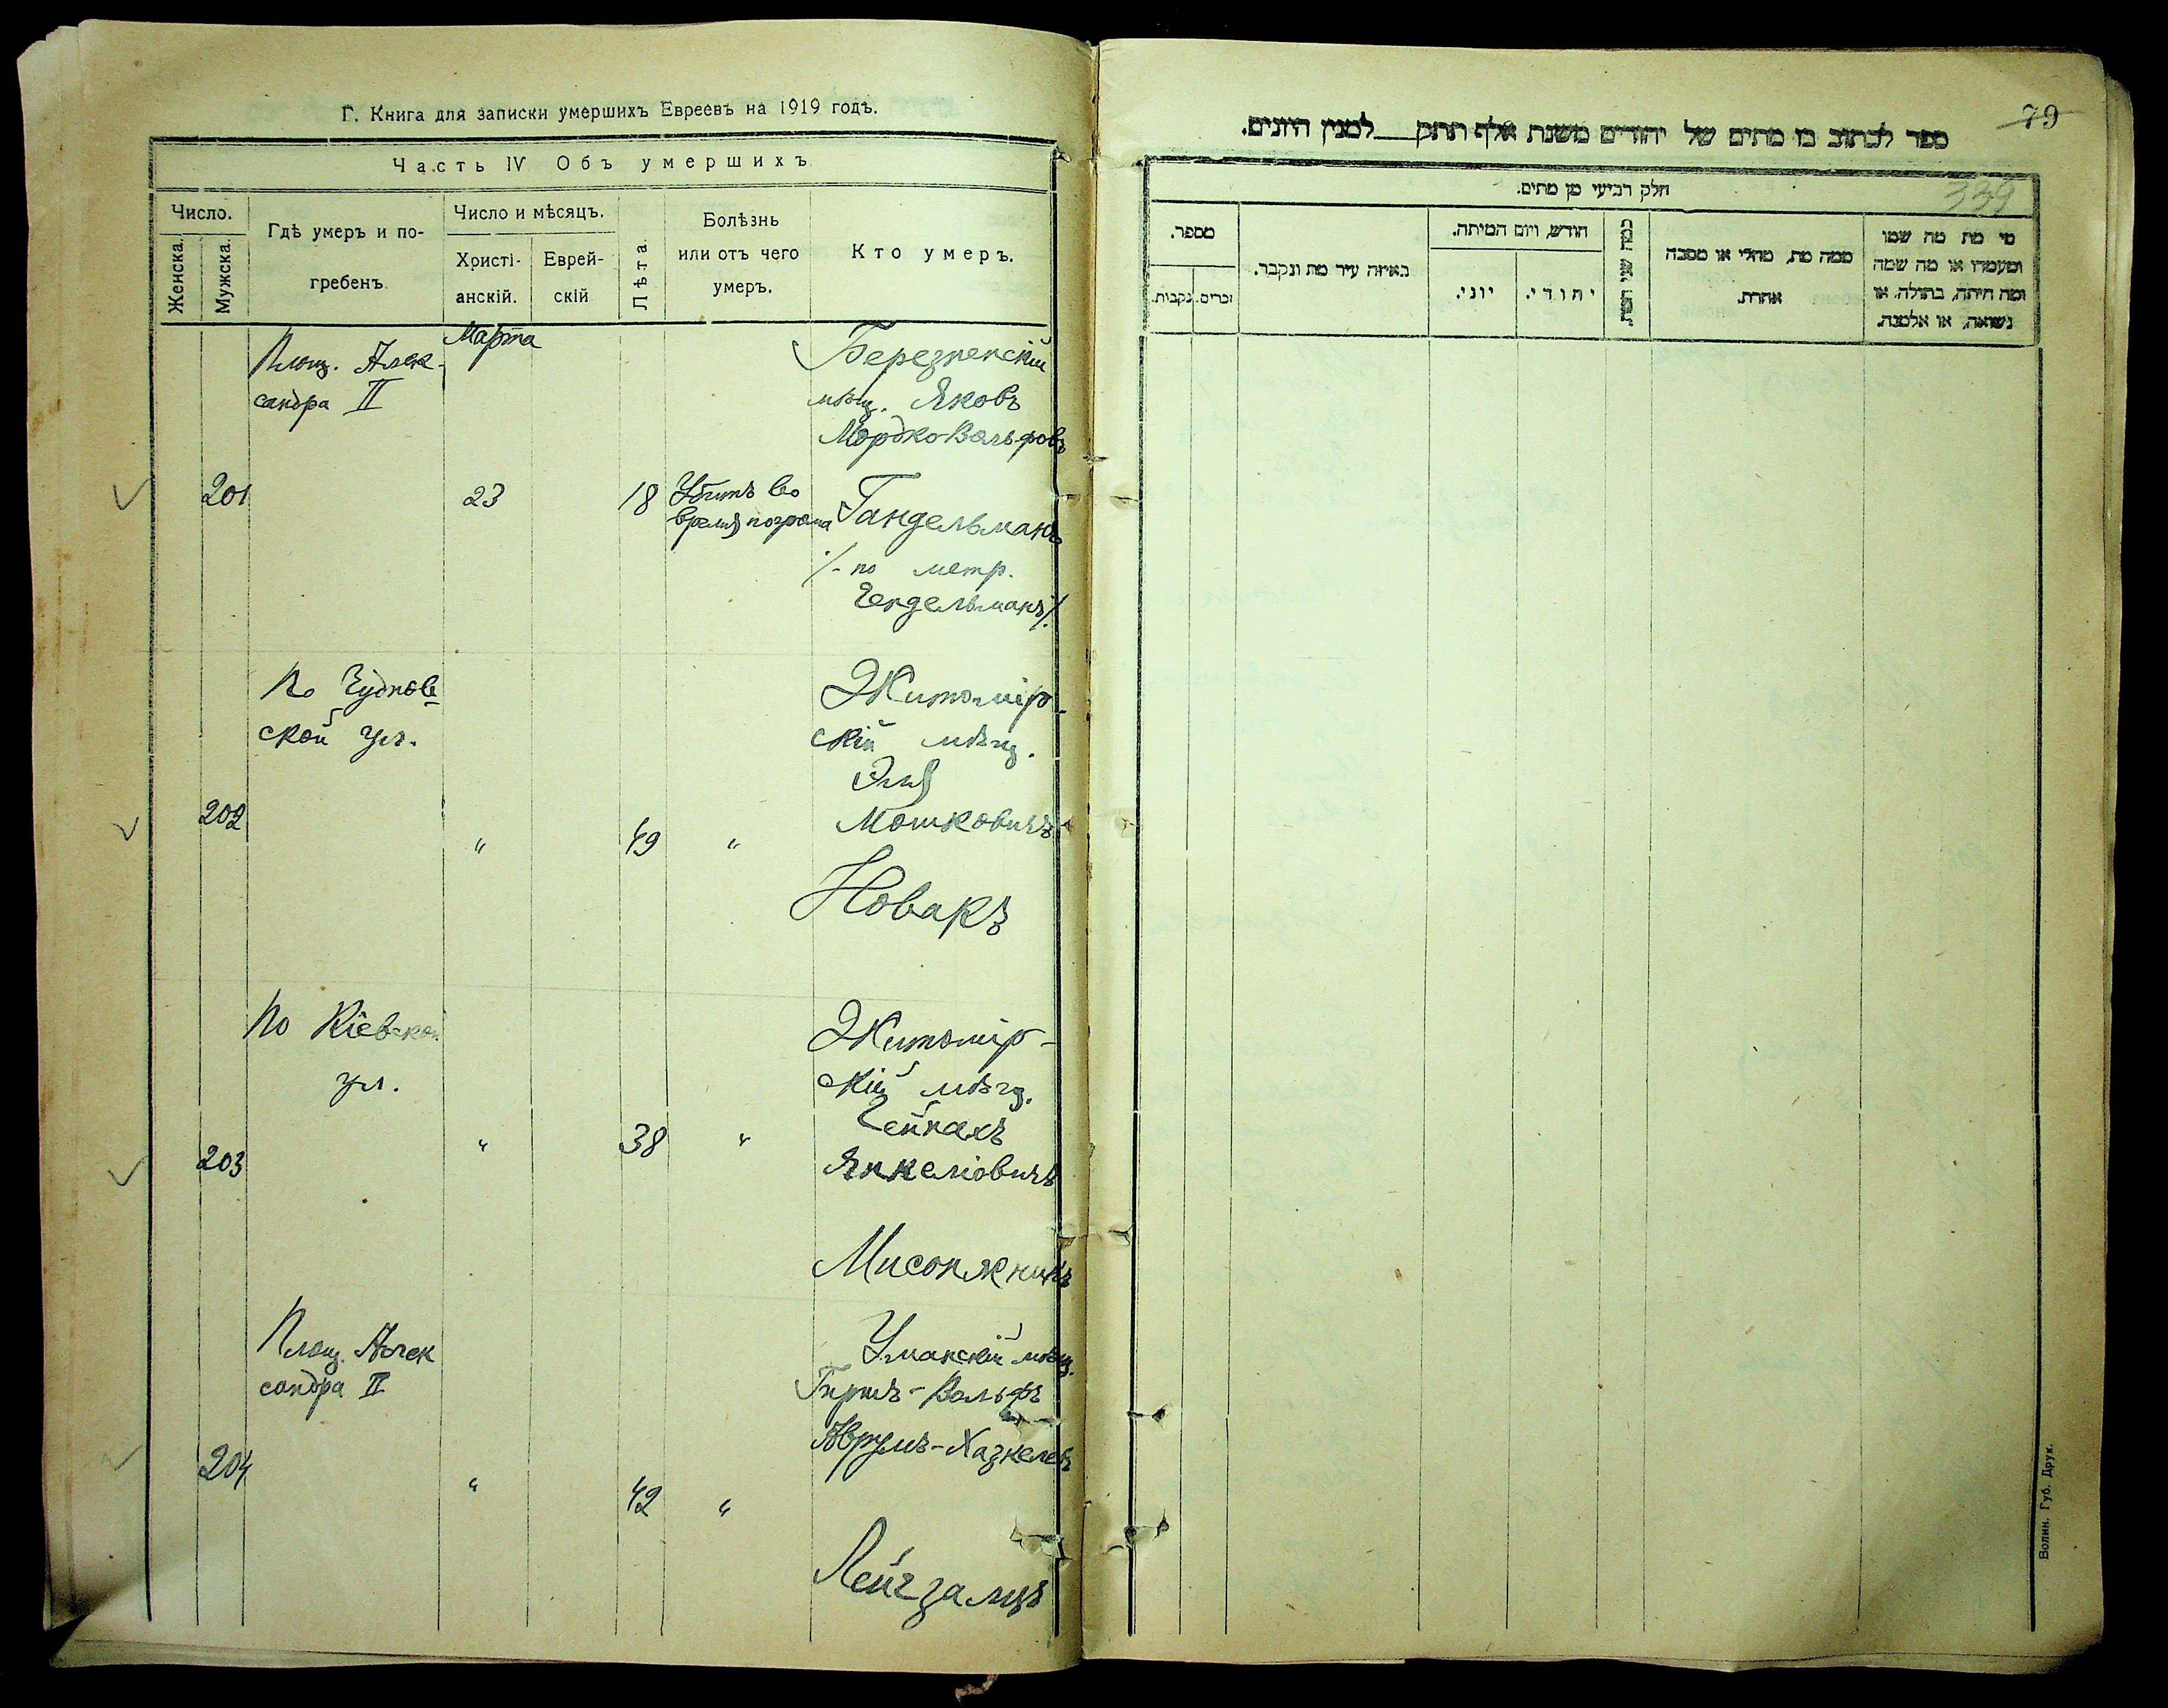 Г. Книга для записки умершихъ Евреевъ на 1919 годъ.
Часть IV Объ умершихъ
Число.
Женска.
Мужска.
Гдѣ умеръ и по-
гребенъ
Число и мѣсяцъ.
Христі-
анскій.
Еврей-
скій
Лѣта.
Болѣзнь
или отъ чего
умеръ.
Кто умеръ.
Марта
Площ. Алек-
сандра II
Березненскій
мѣщ. Яковъ
Мордко-Вольфовъ
201
23
18
Убитъ во
время погрома
Гандельманъ
/-по метр.
Гендельманъ/.
По Чуднов-
ской ул.
Житомір-
скій мѣщ.
Эля
Мошковичъ
202
"
49
"
Новакъ
По Кіевской
ул.
Житомір-
скій мѣщ.
Гейнахъ
Янкеліовичъ
203
"
38
"
Мисонжникъ
Площ. Алек
сандра II
Уманскій мѣщ.
Гершъ-Вольфъ
Аврумъ-Хазкелев
204
"
42
"
Лейгзальцъ
79
ספר לכתוב בו מתים של יהודים משנת אלף תתק למנין היונים.
339
חלק רביעי מן מתים.
מספר.
נקבות.
זכרים.
באיזה עיר מת ונקבר.
חודש, ויום המיתה.
יוני.
יהודי.
כמה שני המת.
ממה מת, מחלי או מסבה
אחרת.
מי מת מה שמו
ומעמדו או מה שמה
ומה היתה, בתולה, או
נשואה, או אלמנה.
Волин. Губ. Друк.